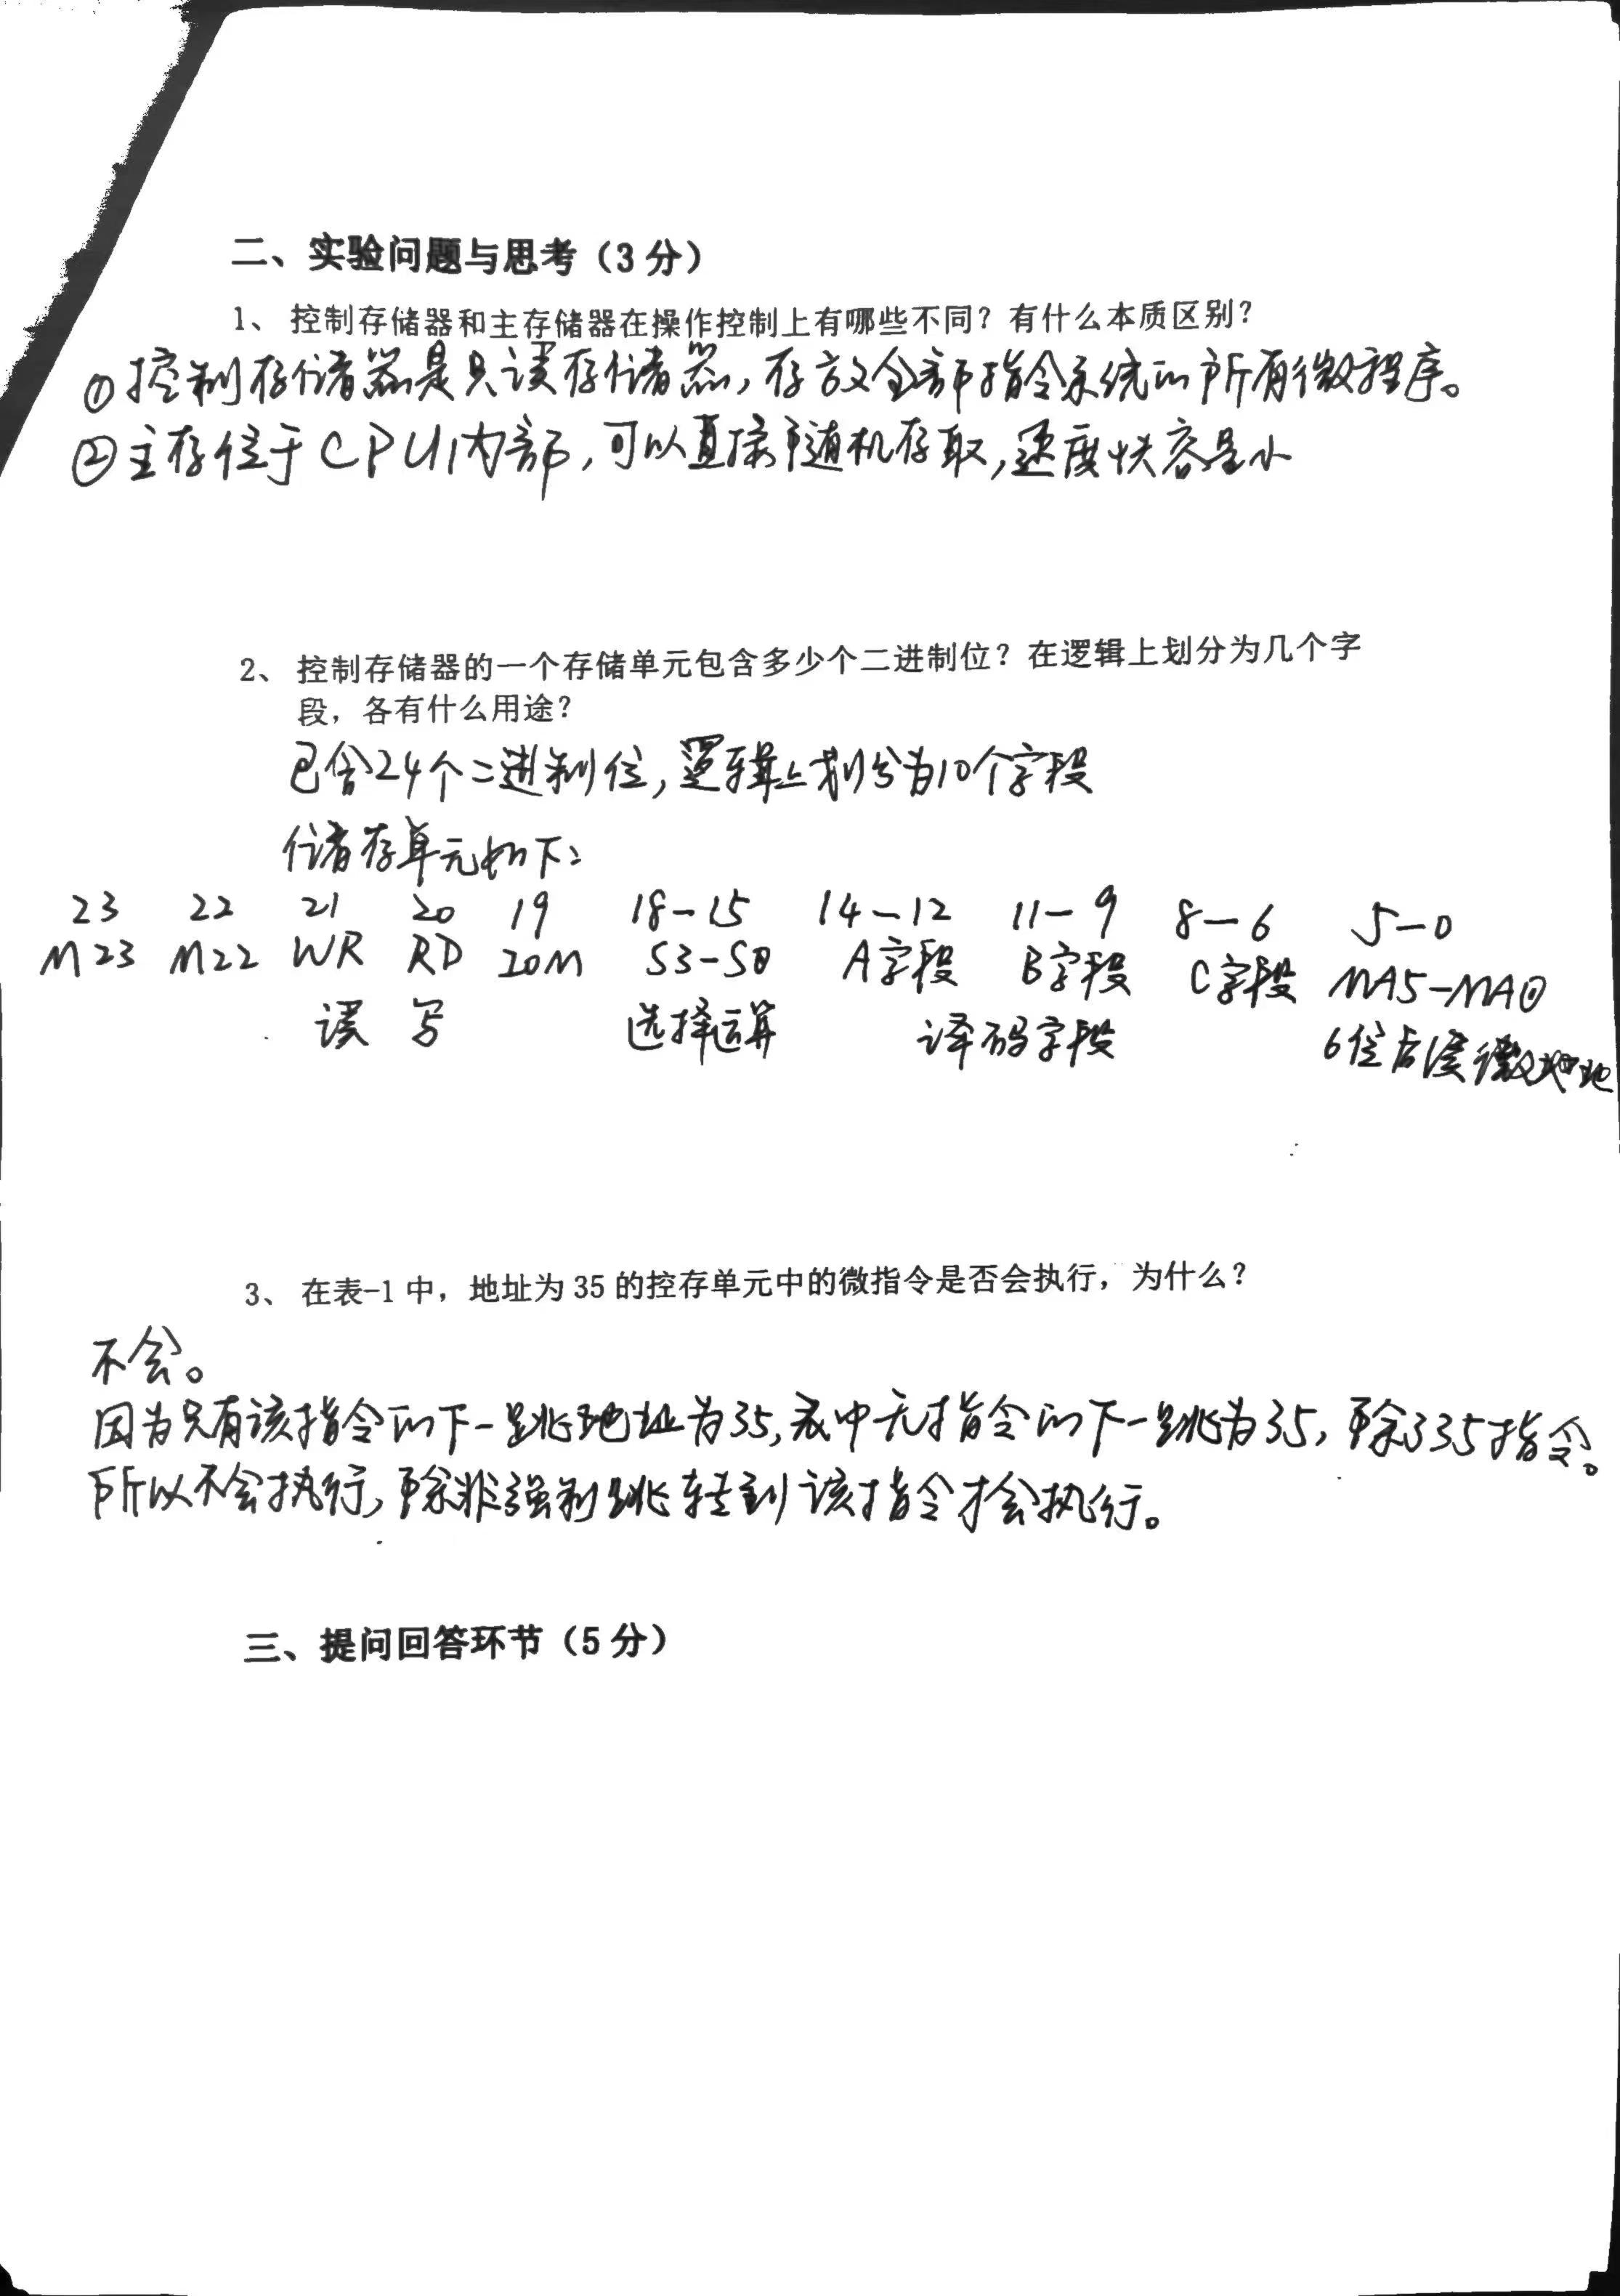 二、实验问题与思考（3 分）
1、 控制存储器和主存储器在操作控制上有哪些不同？有什么本质区别？
①控制存储器是只读存储器，存放全部指令系统的所有微程序。
②主存位于CPU内部，可以直接随机存取，速度快容量小
2、 控制存储器的一个存储单元包含多少个二进制位？在逻辑上划分为几个字
段，各有什么用途？
包含24个二进制位，逻辑上划分为10个字段
储存单元如下：
23 22 21 20 19 18-15 14-12 11-9 8-6 5-0
M23 M22 WR RD IOM S3-S0 A字段 B字段 C字段 MA5-MA0
读 写 选择运算 译码字段 6位后续微地址
3、 在表-1 中，地址为 35 的控存单元中的微指令是否会执行，为什么？
不会。
因为只有该指令的下一跳地址为35，表中无指令的下一跳为35，除了35指令。
所以不会执行，除非强制跳转到该指令才会执行。
三、提问回答环节（5 分）